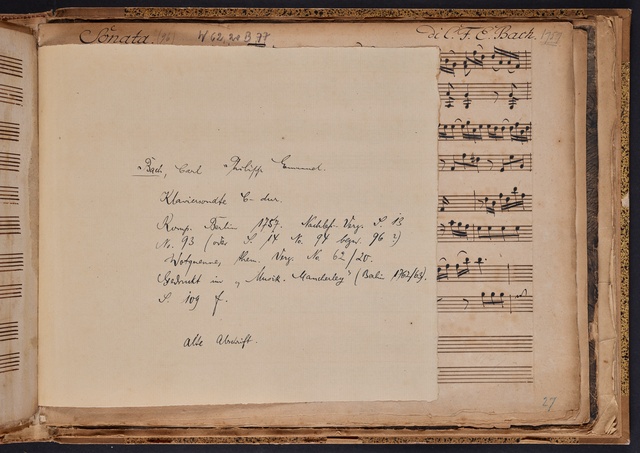 Sonata. W 62, 20 B 77 di C. F. E. Bach. 1757
Bach, Carl Philipp Emanuel.
Klaviersonate C dur.
Komp. Berlin 1757. Nachlaß-Verz. S. 13
No. 93 (oder S. 14 No. 94 bezw. 96?)
Wotquenne, them. Verz. No 62/20.
Gedruckt in „Musik. Mancherley" (Berlin 1762/63).
S. 109 f.
Alte Abschrift.
27